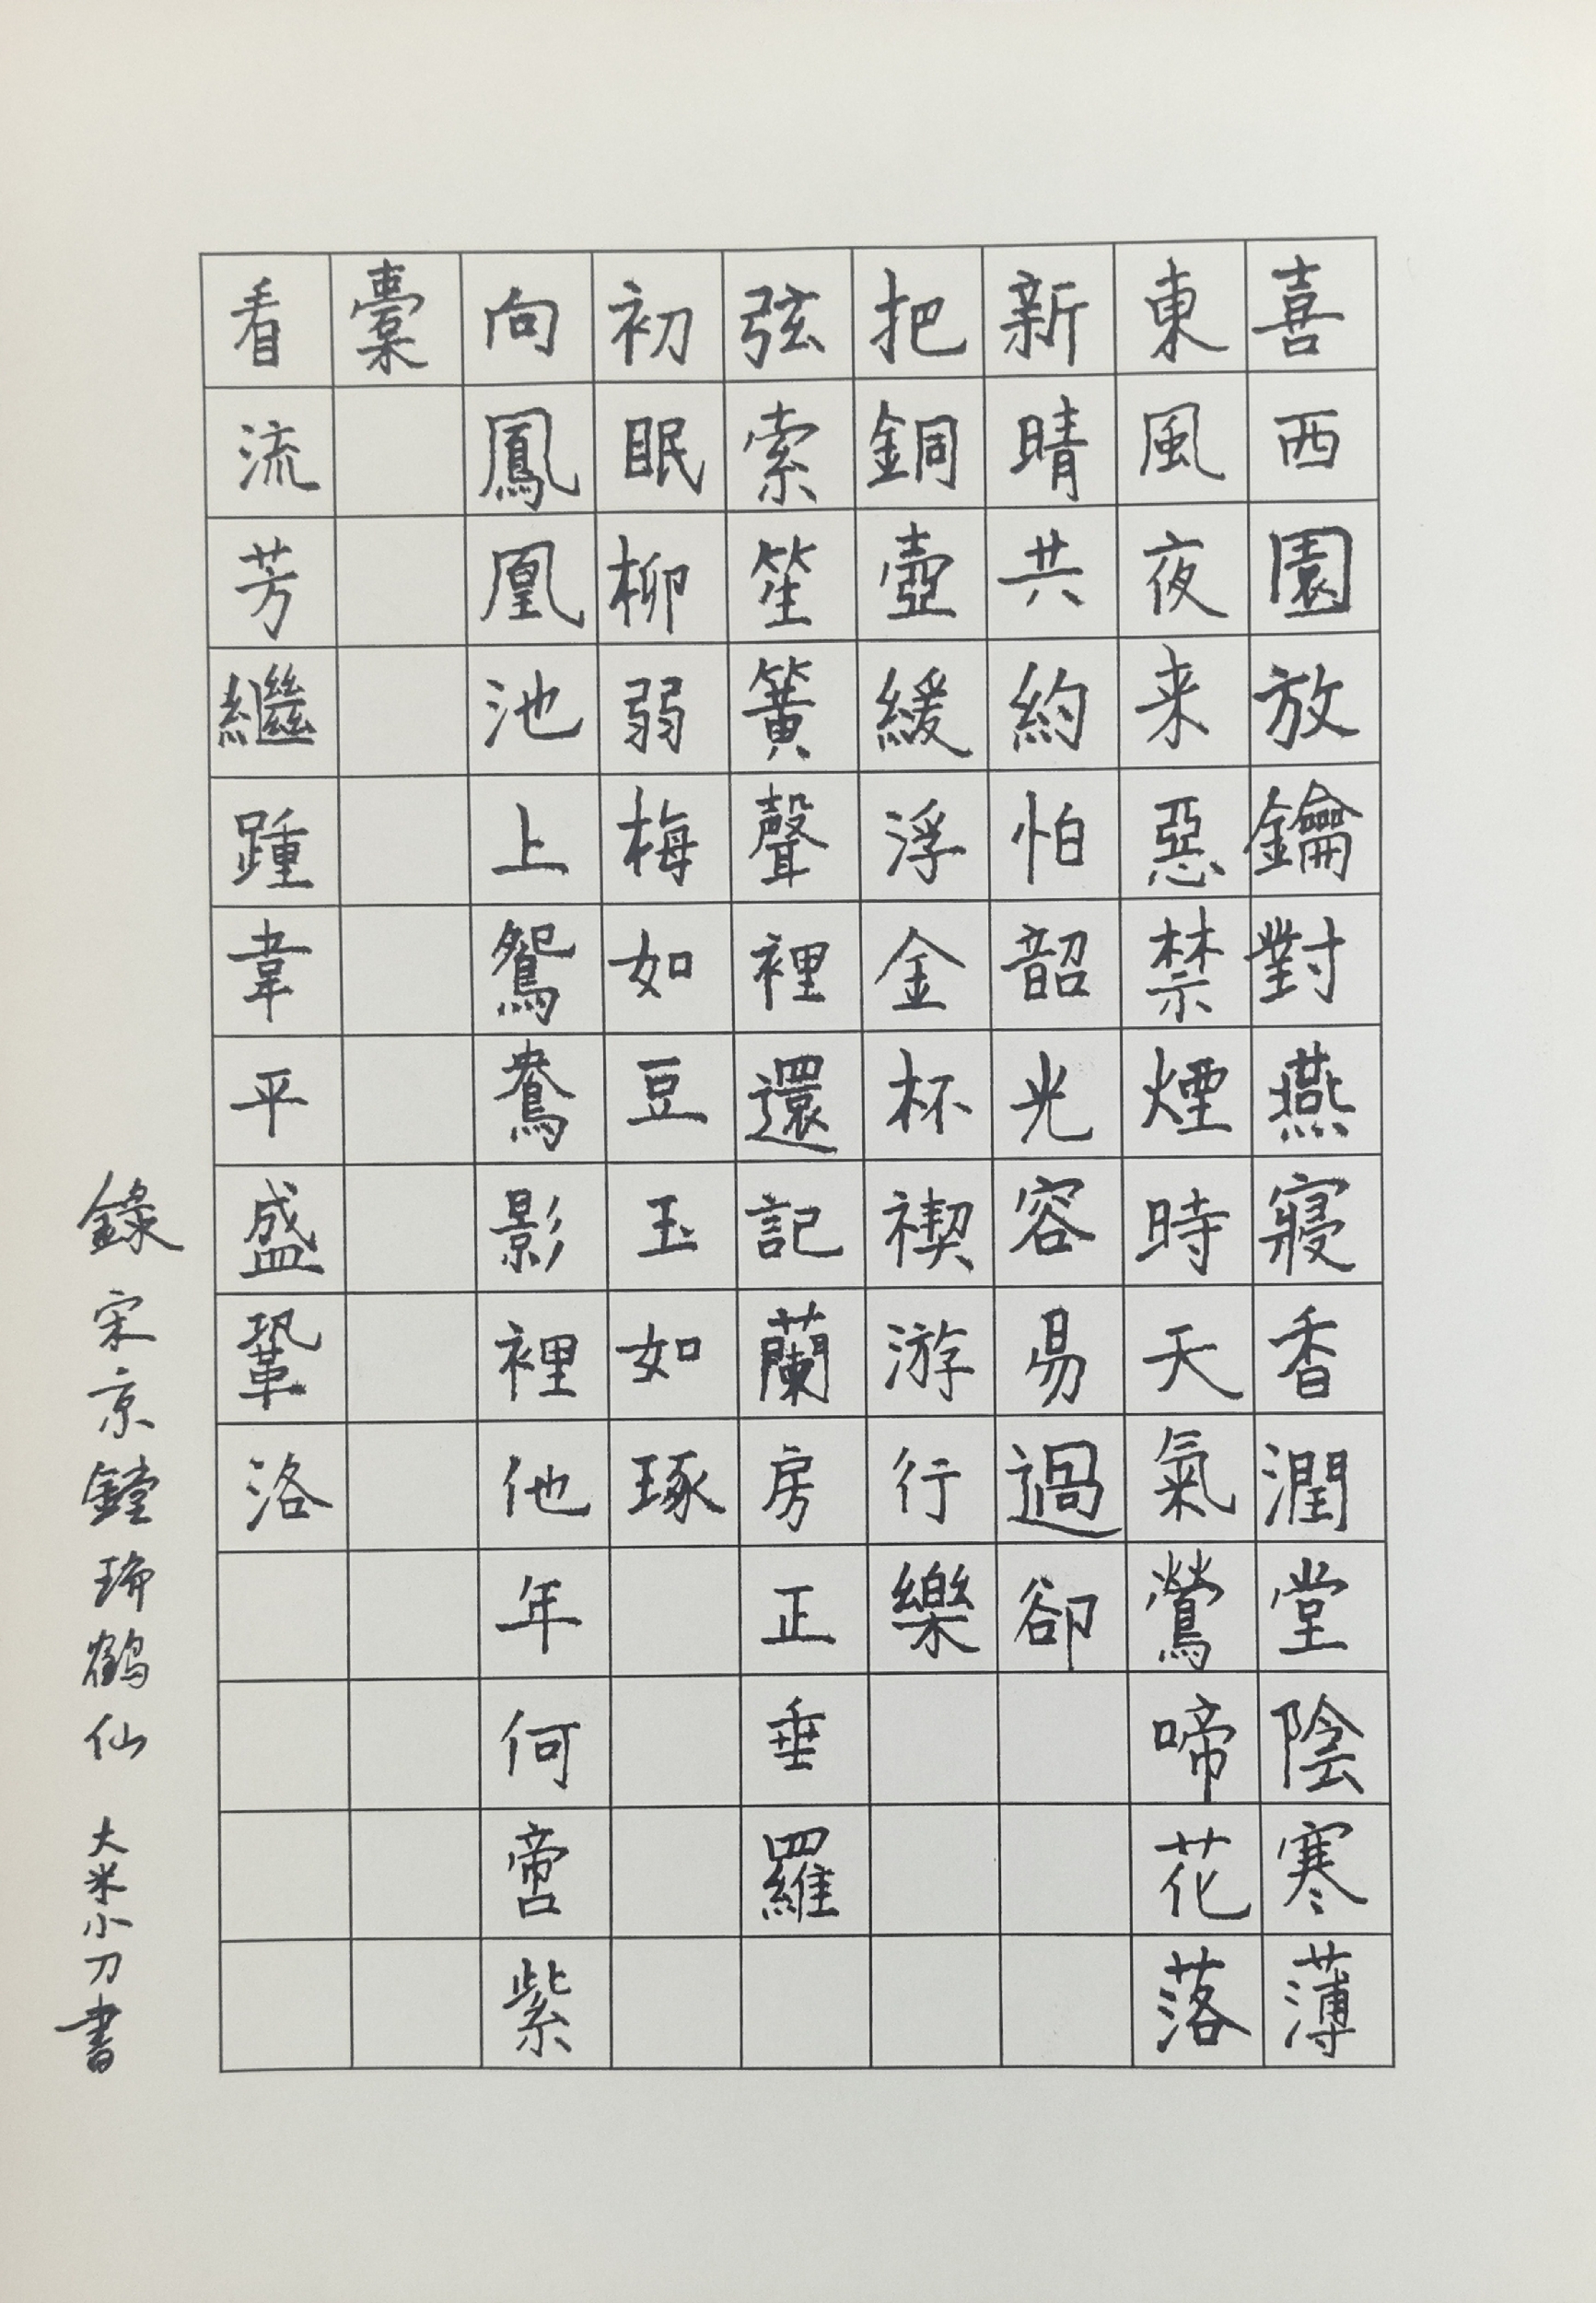 喜西園放鑰對燕寢香潤堂陰寒薄
東風夜来惡禁煙時天氣鶯啼花落
新晴共約怕韶光容易過卻
把銅壺緩浮金杯禊游行樂
弦索笙簧聲裡還記蘭房正垂羅
初眠柳弱梅如豆玉如琢
向鳳凰池上鴛鴦影裡他年何啻紫
橐
看流芳繼踵韋平盛鞏洛
錄宋京鏜瑞鶴仙 大米小刀書